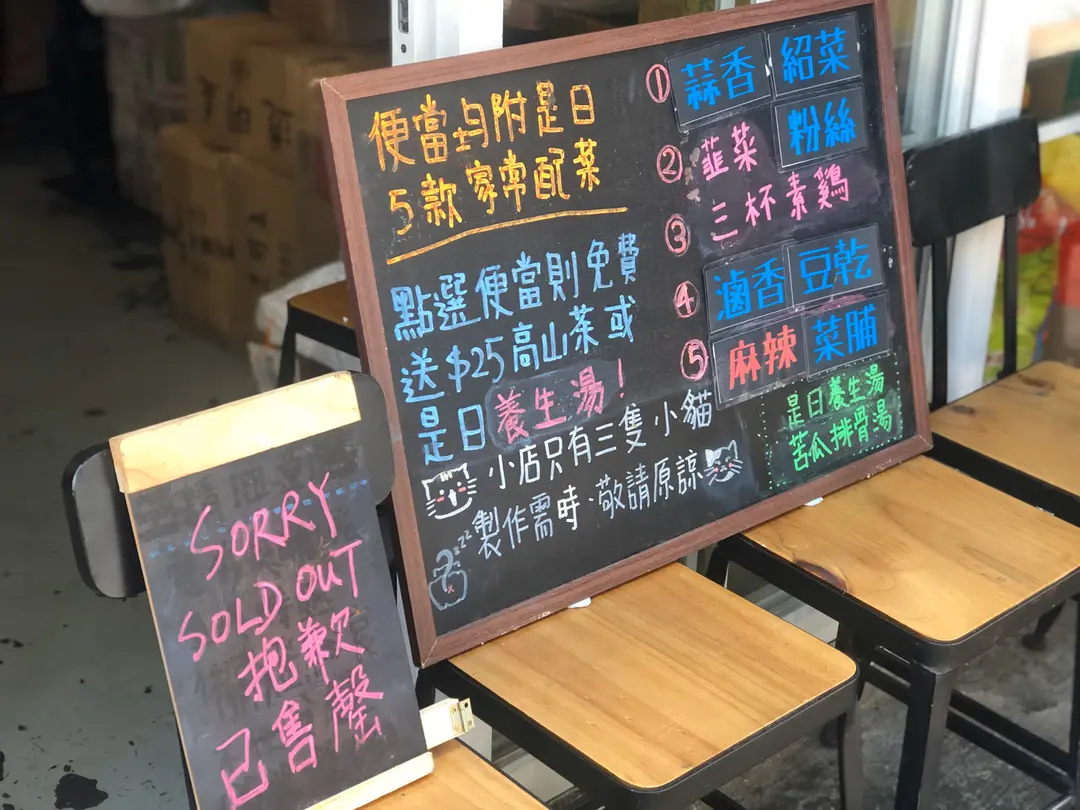 便當均附是日
5款家常配菜
點選便當則免費
送$25高山茶或
是日養生湯！
小店只有三隻小貓
製作需時·敬請原諒
zzz
① 蒜香 紹菜
粉絲
② 韮菜
三杯素鷄
③
④ 滷香 豆乾
⑤ 麻辣 菜脯
是日養生湯
苦瓜排骨湯
SORRY
SOLD OUT
抱歉
已售罄